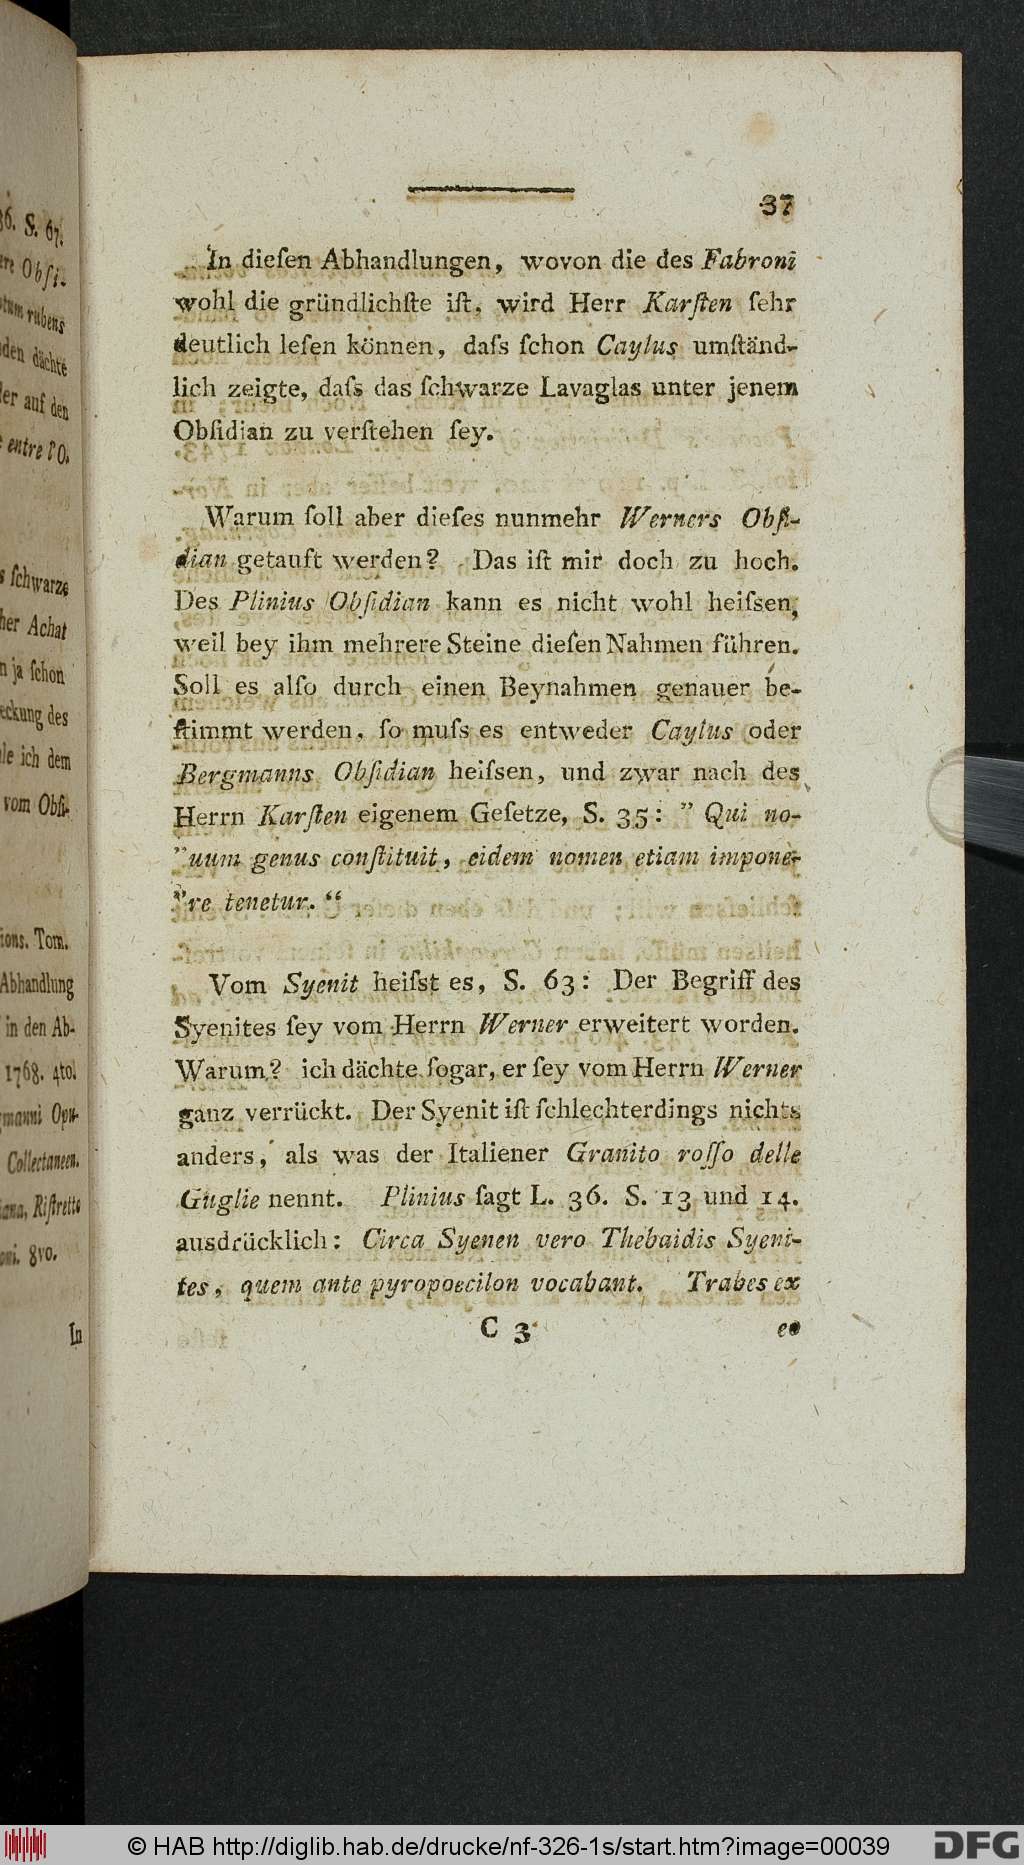 36. S. 67.
ere Obſi-
tum rubens
den dächte
der auf den
entre l'O.
s ſchwarze
her Achat
n ja ſchon
eckung des
le ich dem
vom Obſi-
ions. Tom.
Abhandlung
in den Ab-
1768. 4to.
gmanni Opu-
Collectaneen.
iana, Riſtretto
oni. 8vo.
In
37
In dieſen Abhandlungen, wovon die des Fabroni
wohl die gründlichſte iſt, wird Herr Karſten ſehr
deutlich leſen können, daſs ſchon Caylus umſtänd-
lich zeigte, daſs das ſchwarze Lavaglas unter jenem
Obſidian zu verſtehen ſey.
Warum ſoll aber dieſes nunmehr Werners Obſi-
dian getauft werden? Das iſt mir doch zu hoch.
Des Plinius Obſidian kann es nicht wohl heiſsen,
weil bey ihm mehrere Steine dieſen Nahmen führen.
Soll es alſo durch einen Beynahmen genauer be-
ſtimmt werden, ſo muſs es entweder Caylus oder
Bergmanns Obſidian heiſsen, und zwar nach des
Herrn Karſten eigenem Geſetze, S. 35: ” Qui no-
”uum genus conſtituit, eidem nomen etiam impone-
”re tenetur. “
Vom Syenit heiſst es, S. 63: Der Begriff des
Syenites ſey vom Herrn Werner erweitert worden.
Warum? ich dächte ſogar, er ſey vom Herrn Werner
ganz verrückt. Der Syenit iſt ſchlechterdings nichts
anders, als was der Italiener Granito roſſo delle
Guglie nennt. Plinius ſagt L. 36. S. 13 und 14.
ausdrücklich: Circa Syenen vero Thebaidis Syeni-
tes, quem ante pyropoecilon vocabant. Trabes ex
C 3 eo
© HAB http://diglib.hab.de/drucke/nf-326-1s/start.htm?image=00039
DFG